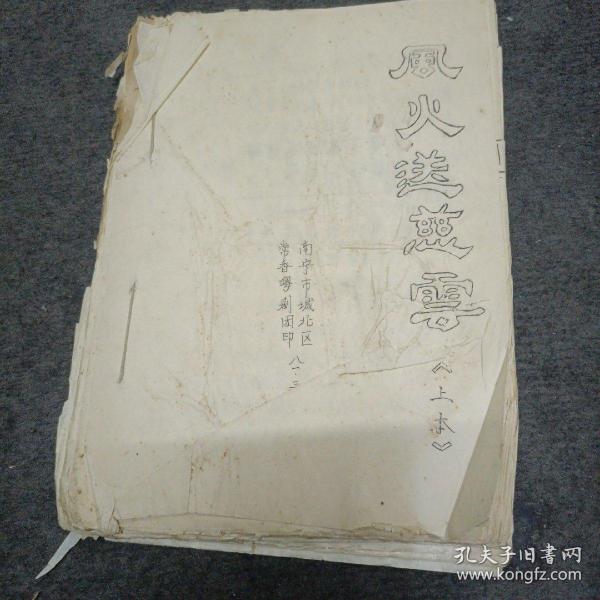 風火送慈雲《上本》
南宁市城北区
常香粤剧团印 八一.三
孔夫子旧书网
www.kongfz.com